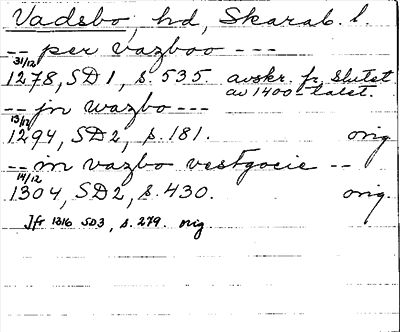 Vadsbo, hd, Skarab. l.
-- per vazboo ---
31/12
1278, SD1, s. 535. avskr. fr. slutet
av 1400-talet.
-- jn wazbo ---
13/12
1294, SD2, s. 181. orig
-- in vazbo vestgocie --
14/12
1304, SD2, s. 430. orig.
Jfr 1316 SD3, s. 279. orig